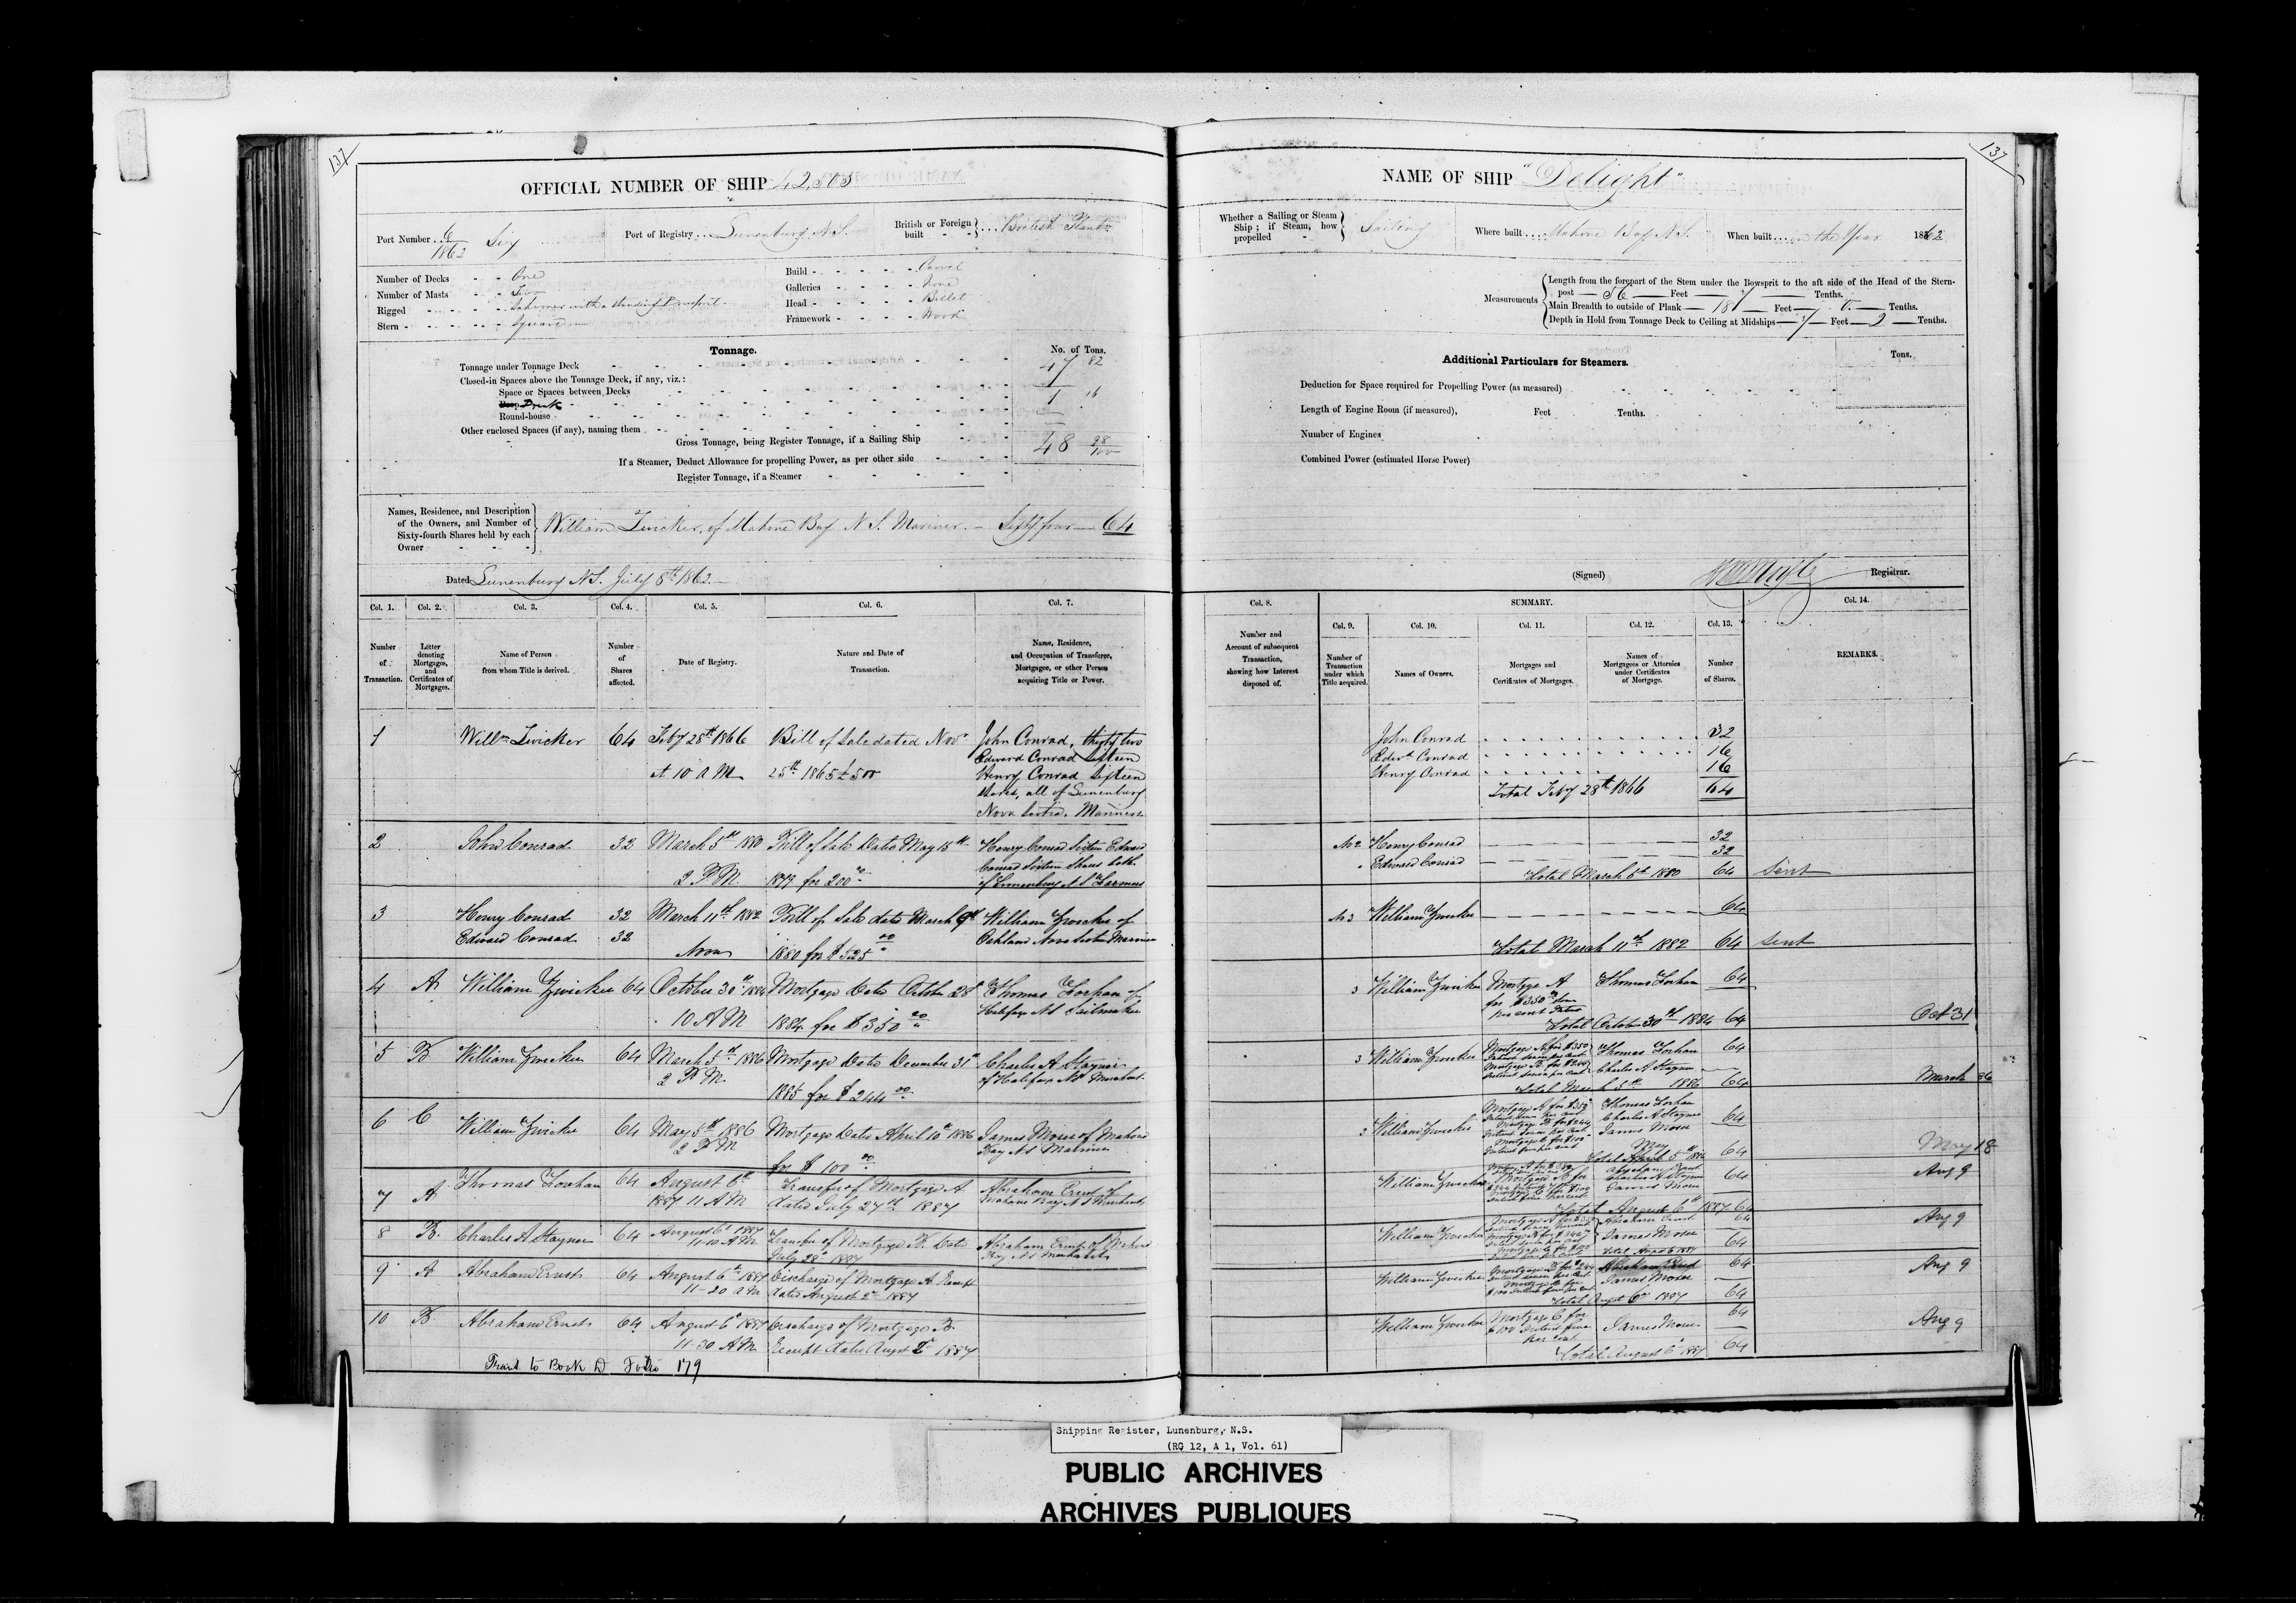 137
OFFICIAL NUMBER OF SHIP 42,505
Port Number 6/1862 Six
Port of Registry Lunenburg N.S.
British or Foreign built British Plantn
Number of Decks One
Number of Masts Two
Rigged Schooner with a standing Bowsprit
Stern Square
Build Carvel
Galleries None
Head Billet
Framework Wood
Tonnage.
No. of Tons.
Tonnage under Tonnage Deck 47 82
Closed-in Spaces above the Tonnage Deck, if any, viz.:
Space or Spaces between Decks
Break 1 16
Round-house
Other enclosed Spaces (if any), naming them
Gross Tonnage, being Register Tonnage, if a Sailing Ship 48 98/100
If a Steamer, Deduct Allowance for propelling Power, as per other side
Register Tonnage, if a Steamer
Names, Residence, and Description of the Owners, and Number of Sixty-fourth Shares held by each Owner
William Zwicker, of Mahone Bay N.S. Mariner. Sixty four 64
Dated Lunenburg N.S. July 8th 1862
Col. 1. Number of Transaction.
Col. 2. Letter denoting Mortgages, and Certificates of Mortgages.
Col. 3. Name of Person from whom Title is derived.
Col. 4. Number of Shares affected.
Col. 5. Date of Registry.
Col. 6. Nature and Date of Transaction.
Col. 7. Name, Residence, and Occupation of Transferee, Mortgagee, or other Person acquiring Title or Power.
1 Willm Zwicker 64 Feby 28th 1866 Bill of Sale dated Novr John Conrad, thirty two
at 10 A M 25th 1865 £500 Edward Conrad Sixteen
Henry Conrad Sixteen
Shares, all of Lunenburg
Nova Scotia, Mariners
2 John Conrad 32 March 5th 1880 Bill of Sale Dated May 15th Henry Conrad Sixteen Edward
2 P.M. for 200 Conrad Sixteen Shares both
of Lunenburg N S Farmers
3 Henry Conrad 32 March 11th 1882 Bill of Sale date March 9th William Zwicker of
Edward Conrad 32 Noon 1880 for $525 00 Oakland Nova Scotia Mariner
4 A William Zwicker 64 October 30th 1884 Mortgage Dated October 28th Thomas Forhan of
10 A M 1884 for $350 00 Halifax N S Sailmaker
5 B William Zwicker 64 March 5th 1886 Mortgage Dated December 31st Charles A Stayner
2 P.M. 1885 for $244 00 of Halifax N S Merchant
6 C William Zwicker 64 May 5th 1886 Mortgage Dated April 10th 1886 James Moser of Mahone
2 P M for $100 00 Bay N S Mariner
7 A Thomas Forhan 64 August 6th Transfer of Mortgage A Abraham Ernst of
1887 11 A M dated July 27th 1887 Mahone Bay N S Merchant
8 B. Charles A Stayner 64 August 6th 1887 Transfer of Mortgage B. Dated Abraham Ernst of Mahone
11-10 A M July 28th 1887 Bay N S Merchant
9 A Abraham Ernst 64 August 6th 1887 Discharge of Mortgage A Receipt
11-20 A M dated August 2nd 1887
10 B Abraham Ernst 64 August 6th 1887 Discharge of Mortgage B.
11-30 A M Receipt dated August 2nd 1887
Transd to Book D Folio 179
137
NAME OF SHIP "Delight"
Whether a Sailing or Steam Ship; if Steam, how propelled Sailing
Where built Mahone Bay N.S.
When built in the Year 1862
Measurements
Length from the forepart of the Stem under the Bowsprit to the aft side of the Head of the Stern-
post 56 Feet 7 Tenths.
Main Breadth to outside of Plank 18 Feet Tenths.
Depth in Hold from Tonnage Deck to Ceiling at Midships 7 Feet 2 Tenths.
Additional Particulars for Steamers.
Tons.
Deduction for Space required for Propelling Power (as measured)
Length of Engine Room (if measured), Feet Tenths.
Number of Engines
Combined Power (estimated Horse Power)
(Signed) Registrar.
Col. 8. Number and Account of subsequent Transaction, showing how Interest disposed of.
SUMMARY.
Col. 9. Number of Transaction under which Title acquired.
Col. 10. Names of Owners.
Col. 11. Mortgages and Certificates of Mortgages.
Col. 12. Names of Mortgagees or Attornies under Certificates of Mortgage.
Col. 13. Number of Shares.
Col. 14. REMARKS.
John Conrad 32
Edwd Conrad 16
Henry Conrad 16
Total Feby 28th 1866 64
No 2 Henry Conrad 32
" Edward Conrad 32
Total March 5th 1880 64 Sent
No 3 William Zwicker 64
Total March 11th 1882 64 Sent
3 William Zwicker Mortgage A Thomas Forhan 64
for $350
per cent
Total October 30th 1884 64 Oct 31
3 William Zwicker Mortgage A for $350 Thomas Forhan 64
Mortgage B for $244 Charles A Stayner
Total March 5th 1886 64 March
3 William Zwicker Mortgage A for $350 Thomas Forhan
Mortgage B for $244 Charles A Stayner 64
Mortgage C for $100 James Moser
Total May 5th 1886 64 May 18
William Zwicker Abraham Ernst
Charles A Stayner 64 Aug 9
James Moser
Total August 6th 1887 64
William Zwicker Abraham Ernst 64 Aug 9
James Moser
Total Augt 6 1887 64
William Zwicker Mortgage B for $244 Abraham Ernst 64 Aug 9
James Moser
Total Augst 6th 1887 64
William Zwicker Mortgage C for 64
$100 Interest five James Moser Aug 9
per cent
Total August 6 1887 64
Shipping Register, Lunenburg, N.S.
(RG 12, A 1, Vol. 61)
PUBLIC ARCHIVES
ARCHIVES PUBLIQUES